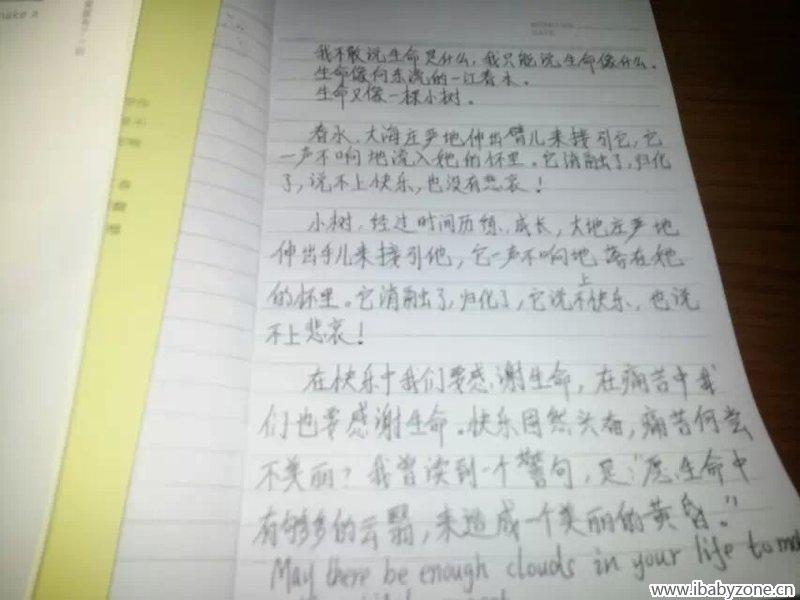 make a
我不敢说生命是什么，我只能说生命像什么。
生命像向东流的一江春水。
生命又像一棵小树。
春水、大海庄严地伸出臂儿来接引它，它
一声不响地流入她的怀里。它消融了，归化
了，说不上快乐，也没有悲哀！
小树，经过时间历练、成长，大地庄严地
伸出手儿来接引他，它一声不响地落在她
的怀里。它消融了，归化了，它说不上快乐，也说
不上悲哀！
在快乐中我们要感谢生命，在痛苦中我
们也要感谢生命。快乐固然头奋，痛苦何尝
不美丽？我曾读到一个警句，是“愿生命中
有够多的云翳，来造成一个美丽的黄昏。”
May there be enough clouds in your life to make
www.ibabyzone.cn